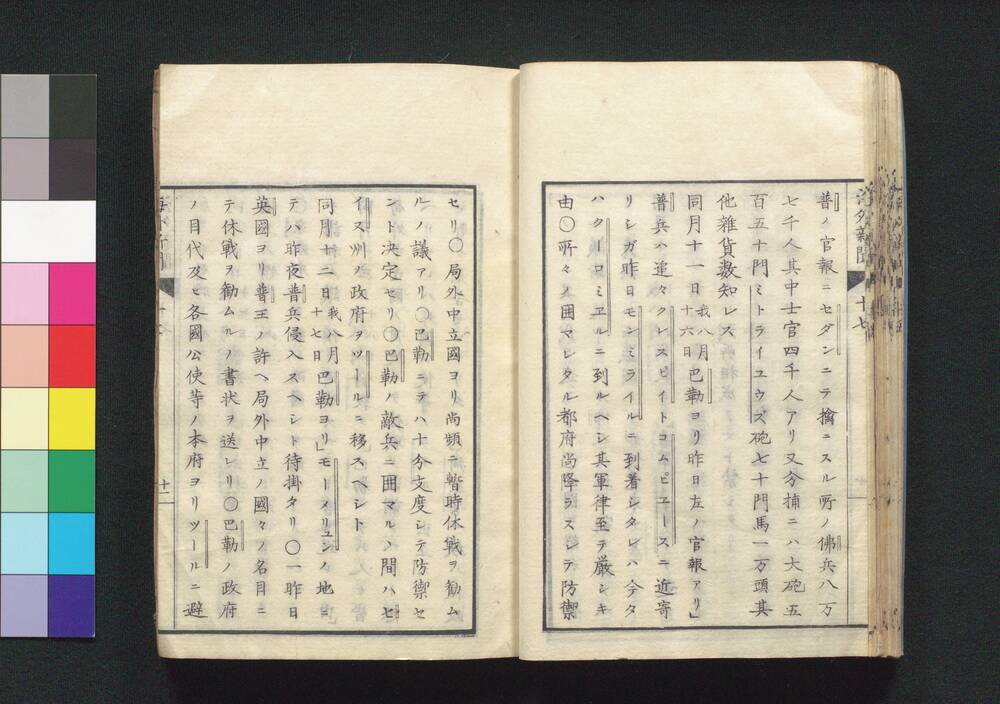 普ノ官報ニセダンニテ擒ニスル所ノ佛兵八万
七千人其中士官四千人アリ又分捕ニハ大砲五
百五十門ミトライユウズ砲七十門馬一万頭其
他雑貨数知レス
同月十一日我八月十六日巴勒ヨリ昨日左ノ官報アリ」
普兵ハ追々クレスピイトコムピヱースニ近寄
リシガ昨日モンミライルニ到着シタレハ今タ
ハクーロミヱルニ到ルヘシ其軍律至テ厳シキ
由〇所々ノ囲マレタル都府尚降ラスシテ防禦
セリ〇局外中立國ヨリ尚頻ニ暫時休戦ヲ勧ム
ルノ議アリ〇巴勒ニテハ十分支度シテ防禦セ
ント决定セリ〇巴勒ノ敵兵ニ囲マルノ間ハセ
イ子ス州ノ政府ヲツールニ移スヘシト
同月十二日我八月十七日巴勒ヨリ」モーメリュンノ地ヨ
テハ昨夜普兵侵入スヘシト待掛タリ〇一昨日
英國ヨリ普王ノ許ヘ局外中立ノ國々ノ名目ニ
テ休戦ヲ勧ムルノ書状ヲ送レリ〇巴勒ノ政府
ノ目代及ヒ各國公使等ノ本府ヨリツールニ避
海外新聞
十七
十二